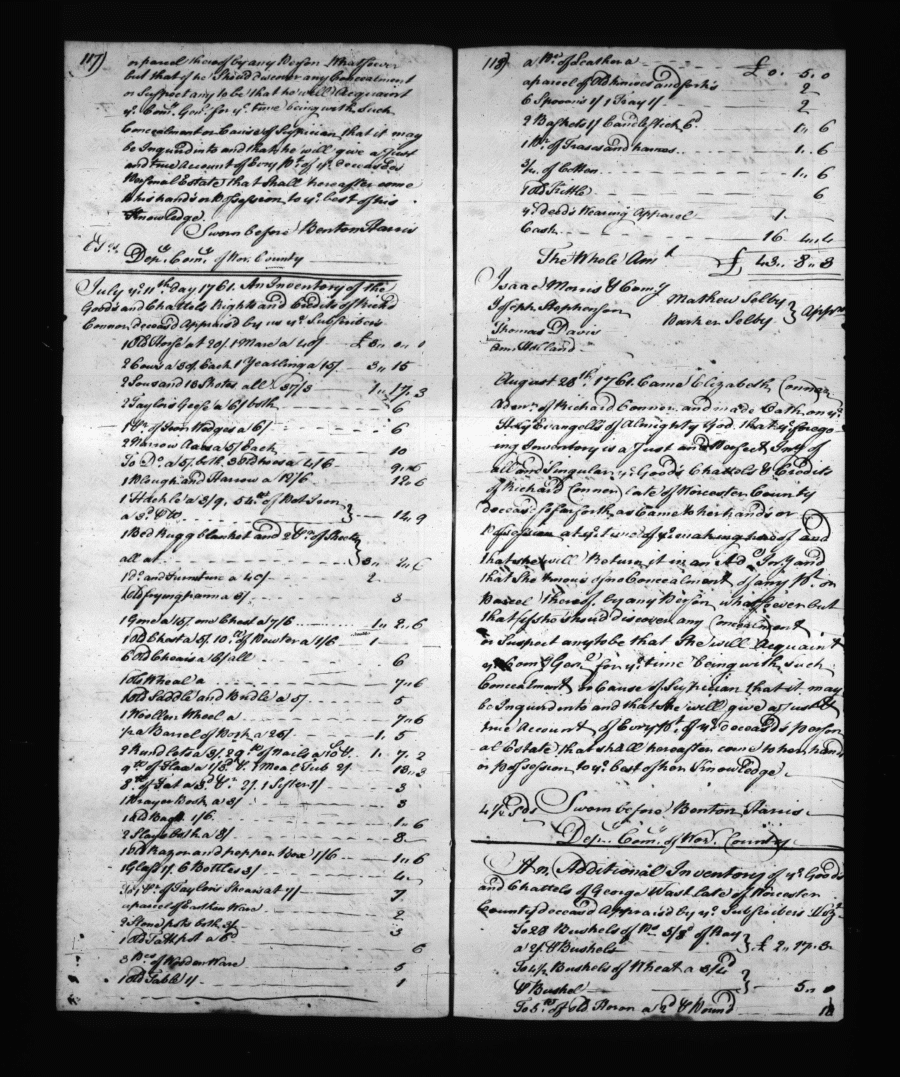 117)
or parcel thereof by any Person Whatsoever
but that if he Should discover any Concealment
or Suspect any to be that he will Acquaint
ye. Comy. Genl. for ye. time being with Such
Concealment or Cause of Suspician that it may
be Inquired into and that he will give a Just
and true Account of Every Pt. of ye. deceasds
Personal Estate that shall hereafter come
to his hands or Possession to ye. best of his
Knowledge.
Sworn before Benton Harris
Depy. Comy. of Wor. County
July ye. 11th. day 1761. An Inventory of the
Goods and Chattels Rights and Credits of Richd.
Connor, deceasd Appraisd by us ye. Subscribers
1 Old Horse at 20/. 1 Mare a 40/ £ 3 " 0 " 0
2 Cows a 30/. Each 1 Yearling a 15/ 3 " 15
2 Sows and 18 Shotes all 37/3 1 " 17 " 3
2 Taylors Geese a 6/ both 6
1 Pr. of Iron Wedges a 6/ 6
2 Narrow Axes a 5/ Each 10
To Do. a 5/. both. 3 Old hoes a 4/6 9 " 6
1 Plough and Harrow a 12/6 12 " 6
1 Hackle a 3/9. 54 lb. of Pot Iron
a 14 " 9
1 Bed Rugg blanket and 2 Pr. of Sheets
all at 3 " 2 " 6
1 do. and Furniture a 40/ 2
1 Old frying pann a 3/ 3
1 Gun a 15/. one Chest a 7/6 1 " 2 " 6
1 Old Chest a 5/. 10 lb. of Pewter a 1/6 1
6 Old Chears a 6/ all 6
1 old Wheal a 7 " 6
1 old Saddle and Bridle a 5/ 5
1 Woollen Wheel a 7 " 6
½ a Barrel of Pork a 25/ 1 " 5
2 Rundlets a 3/. 29 lb. of Nails a 10 1 " 7 " 2
1 Meal Tub 2/ 18 " 3
8 lb. of Fat a 1 Sifter 1/ 3
1 Prayer Book a 3/ 3
1 Old Bagg 1/6 1 " 6
2 Slays both a 8/ 8
1 old Razor and pepper Box 1/6 1 " 6
1 Glass 1/. 6 Bottles 3/ 4
Pr. of Taylors Shears at 7/ 7
a parcel of Earthen Ware 2
2 Stone pots both 3/ 3
1 old 6
3 Pcs of Wooden Ware 5
1 old Table 1/ 1
118)
a Pcl. of Leather a £ 0 " 5 " 0
a parcel of Old knives and forks 2
6 Spoons 1/ 1 Tray 1/ 2
2 Baskets 1/ Candlestick 6d. 1 " 6
1 Pr. of Trases and hames 1 " 6
¾ of Cotton 1 " 6
1 old Kittle 6
ye. deceds Wearing Apparel 1
Cash 16 " 4 " 4
The Whole Amt. £ 43 " 8 " 3
Isaac Morris & Comy
Joseph Stephenson
Thomas Davis
Ann Holland
Mathew Selby
Parker Selby
Apprs
August 28th. 1761. Came Elizabeth Connor
Admx. of Richard Connor and made Oath on ye.
Holy Evangells of Almighty God. that ye. forego-
ing Inventory is a Just and Perfect Invy of
all and Singular ye. Goods Chattels & Credits
of Richard Connor late of Worcester County
deceasd so far forth as Came to her hands or
Possession at ye. time of ye. making thereof and
that she will Return it in an Add. Invy and
that She knows of no Concealment of any Pt. or
Parcel thereof, by any Person whatsoever but
that if she should discover any Concealment
or Suspect any to be that She will Acquaint
ye Comy Genl. for ye. time being with such
Concealment or Cause of Suspician that it may
be Inquird into and that she will give a Just &
true Account of Every Pt. of ye. deceasds person-
al Estate that shall hereafter come to her hands
or possession to ye. best of her Knowledge
Sworn before Benton Harris
Depy. Comy. of Wor. County
An Additional Inventory of ye. Goods
and Chattels of George Wast late of Worcester
County deceasd Appraisd by ye. Subscribers Vizt.
To 28 Bushels of
a 2/ Bushels £ 2 " 17 " 3
To Bushels of Wheat a 3/4
Bushel 5 " 0
To 5 lb. of old Iron a 2d. Pound 10